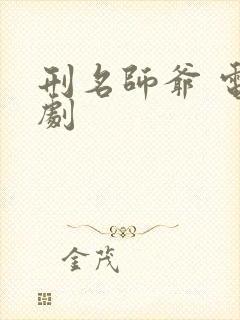 刑名師爺 電
劇
金茂